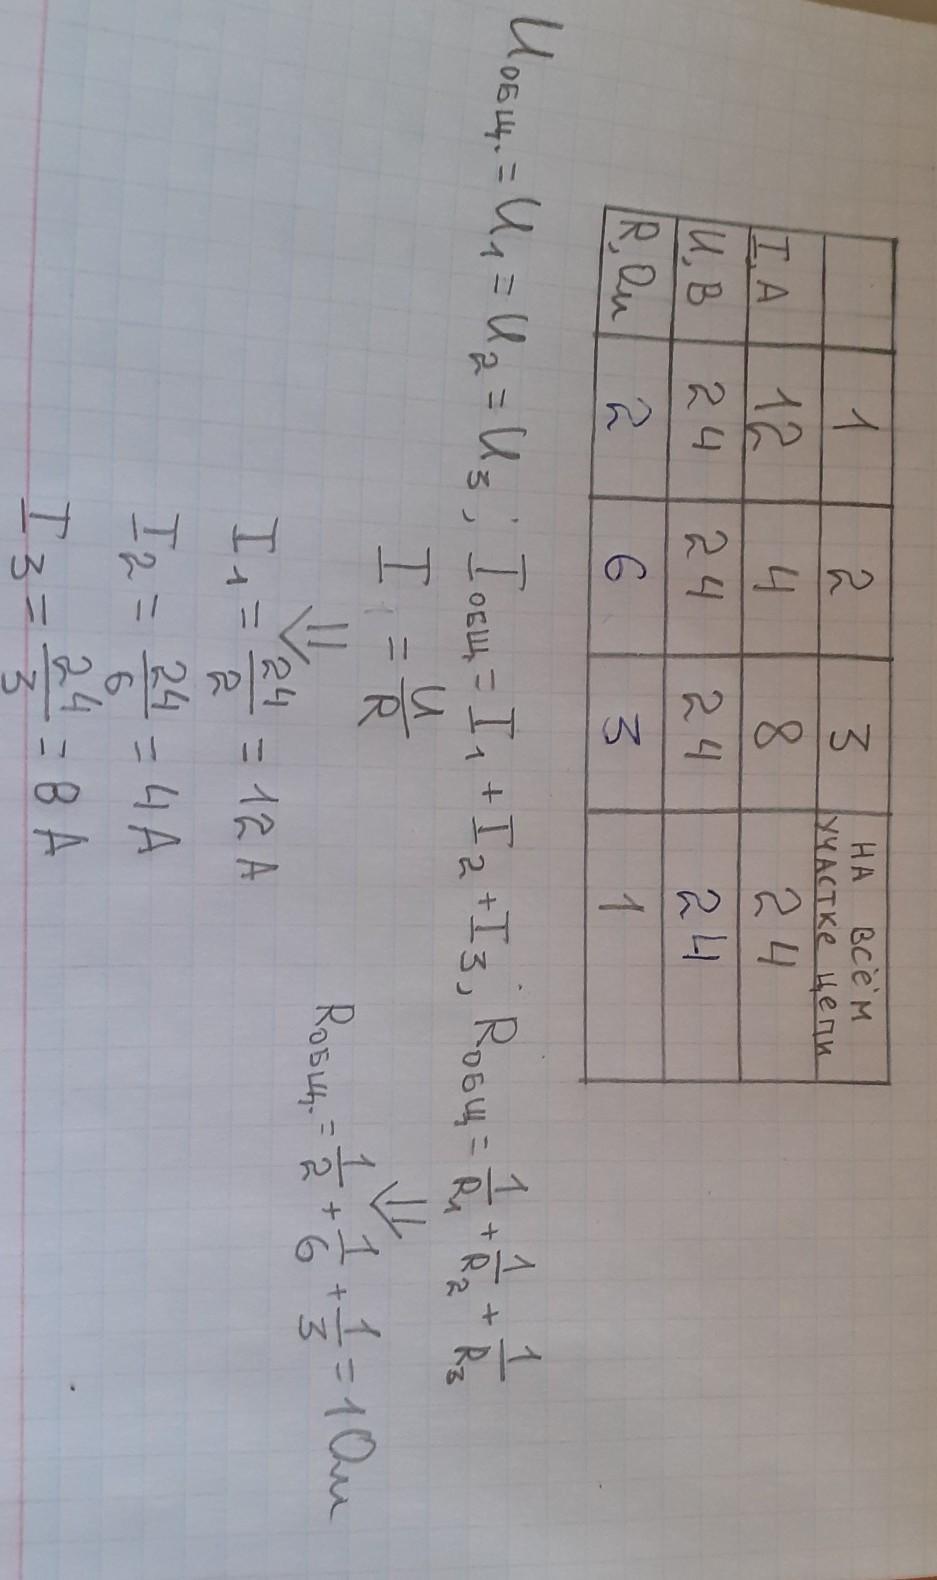 1 2 3 НА ВСЁМ УЧАСТКЕ ЦЕПИ
I, А 12 4 8 24
U, В 24 24 24 24
R, Ом 2 6 3 1
Uобщ. = U1 = U2 = U3; Iобщ = I1 + I2 + I3; Rобщ = 1/R1 + 1/R2 + 1/R3
I = U/R
⇓ ⇓
Rобщ. = 1/2 + 1/6 + 1/3 = 1 Ом
I1 = 24/2 = 12 А
I2 = 24/6 = 4А
I3 = 24/3 = 8 А